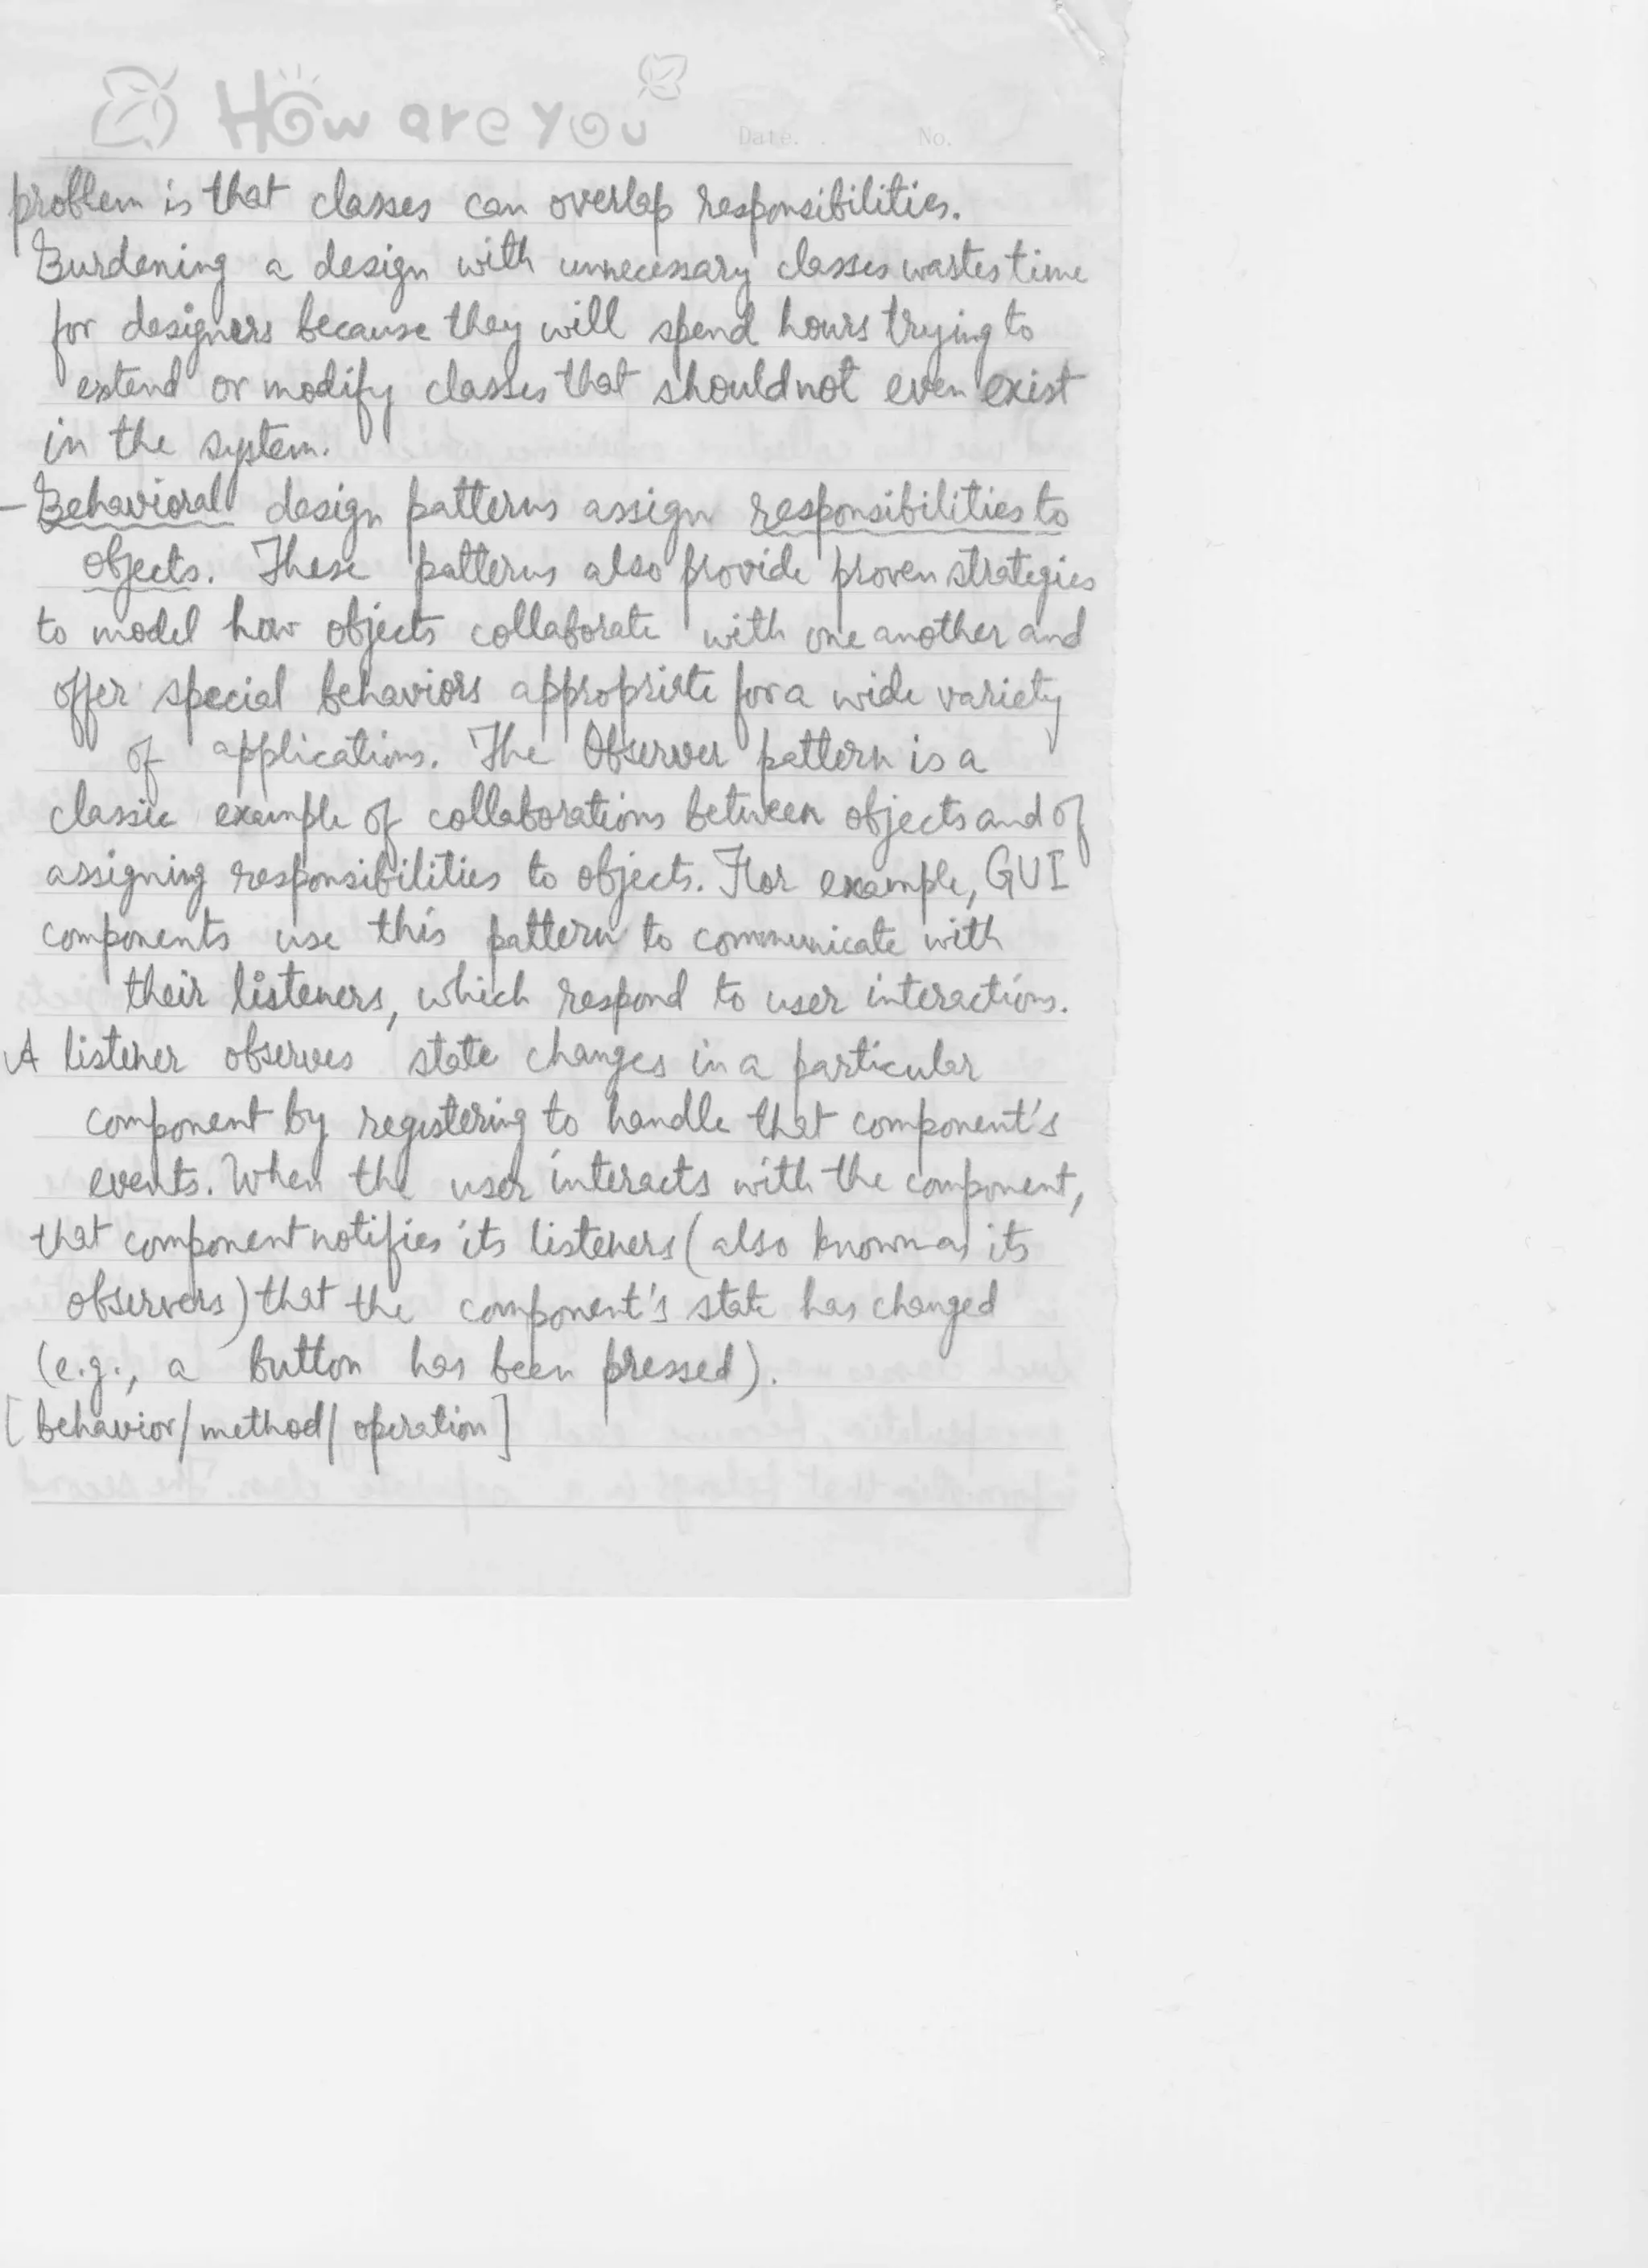 How are you
Date. . No.
problem is that classes can overlap responsibilities.
Burdening a design with unnecessary classes wastes time
for designers because they will spend hours trying to
extend or modify classes that should not even exist
in the system.
- Behavioral design patterns assign responsibilities to
objects. These patterns also provide proven strategies
to model how objects collaborate with one another and
offer special behaviors appropriate for a wide variety
of applications. The Observer pattern is a
classic example of collaborations between objects and of
assigning responsibilities to objects. For example, GUI
components use this pattern to communicate with
their listeners, which respond to user interactions.
A listener observes state changes in a particular
component by registering to handle that component's
events. When the user interacts with the component,
that component notifies its listeners (also known as its
observers) that the component's state has changed
(e.g., a button has been pressed).
[behavior/method/operation]